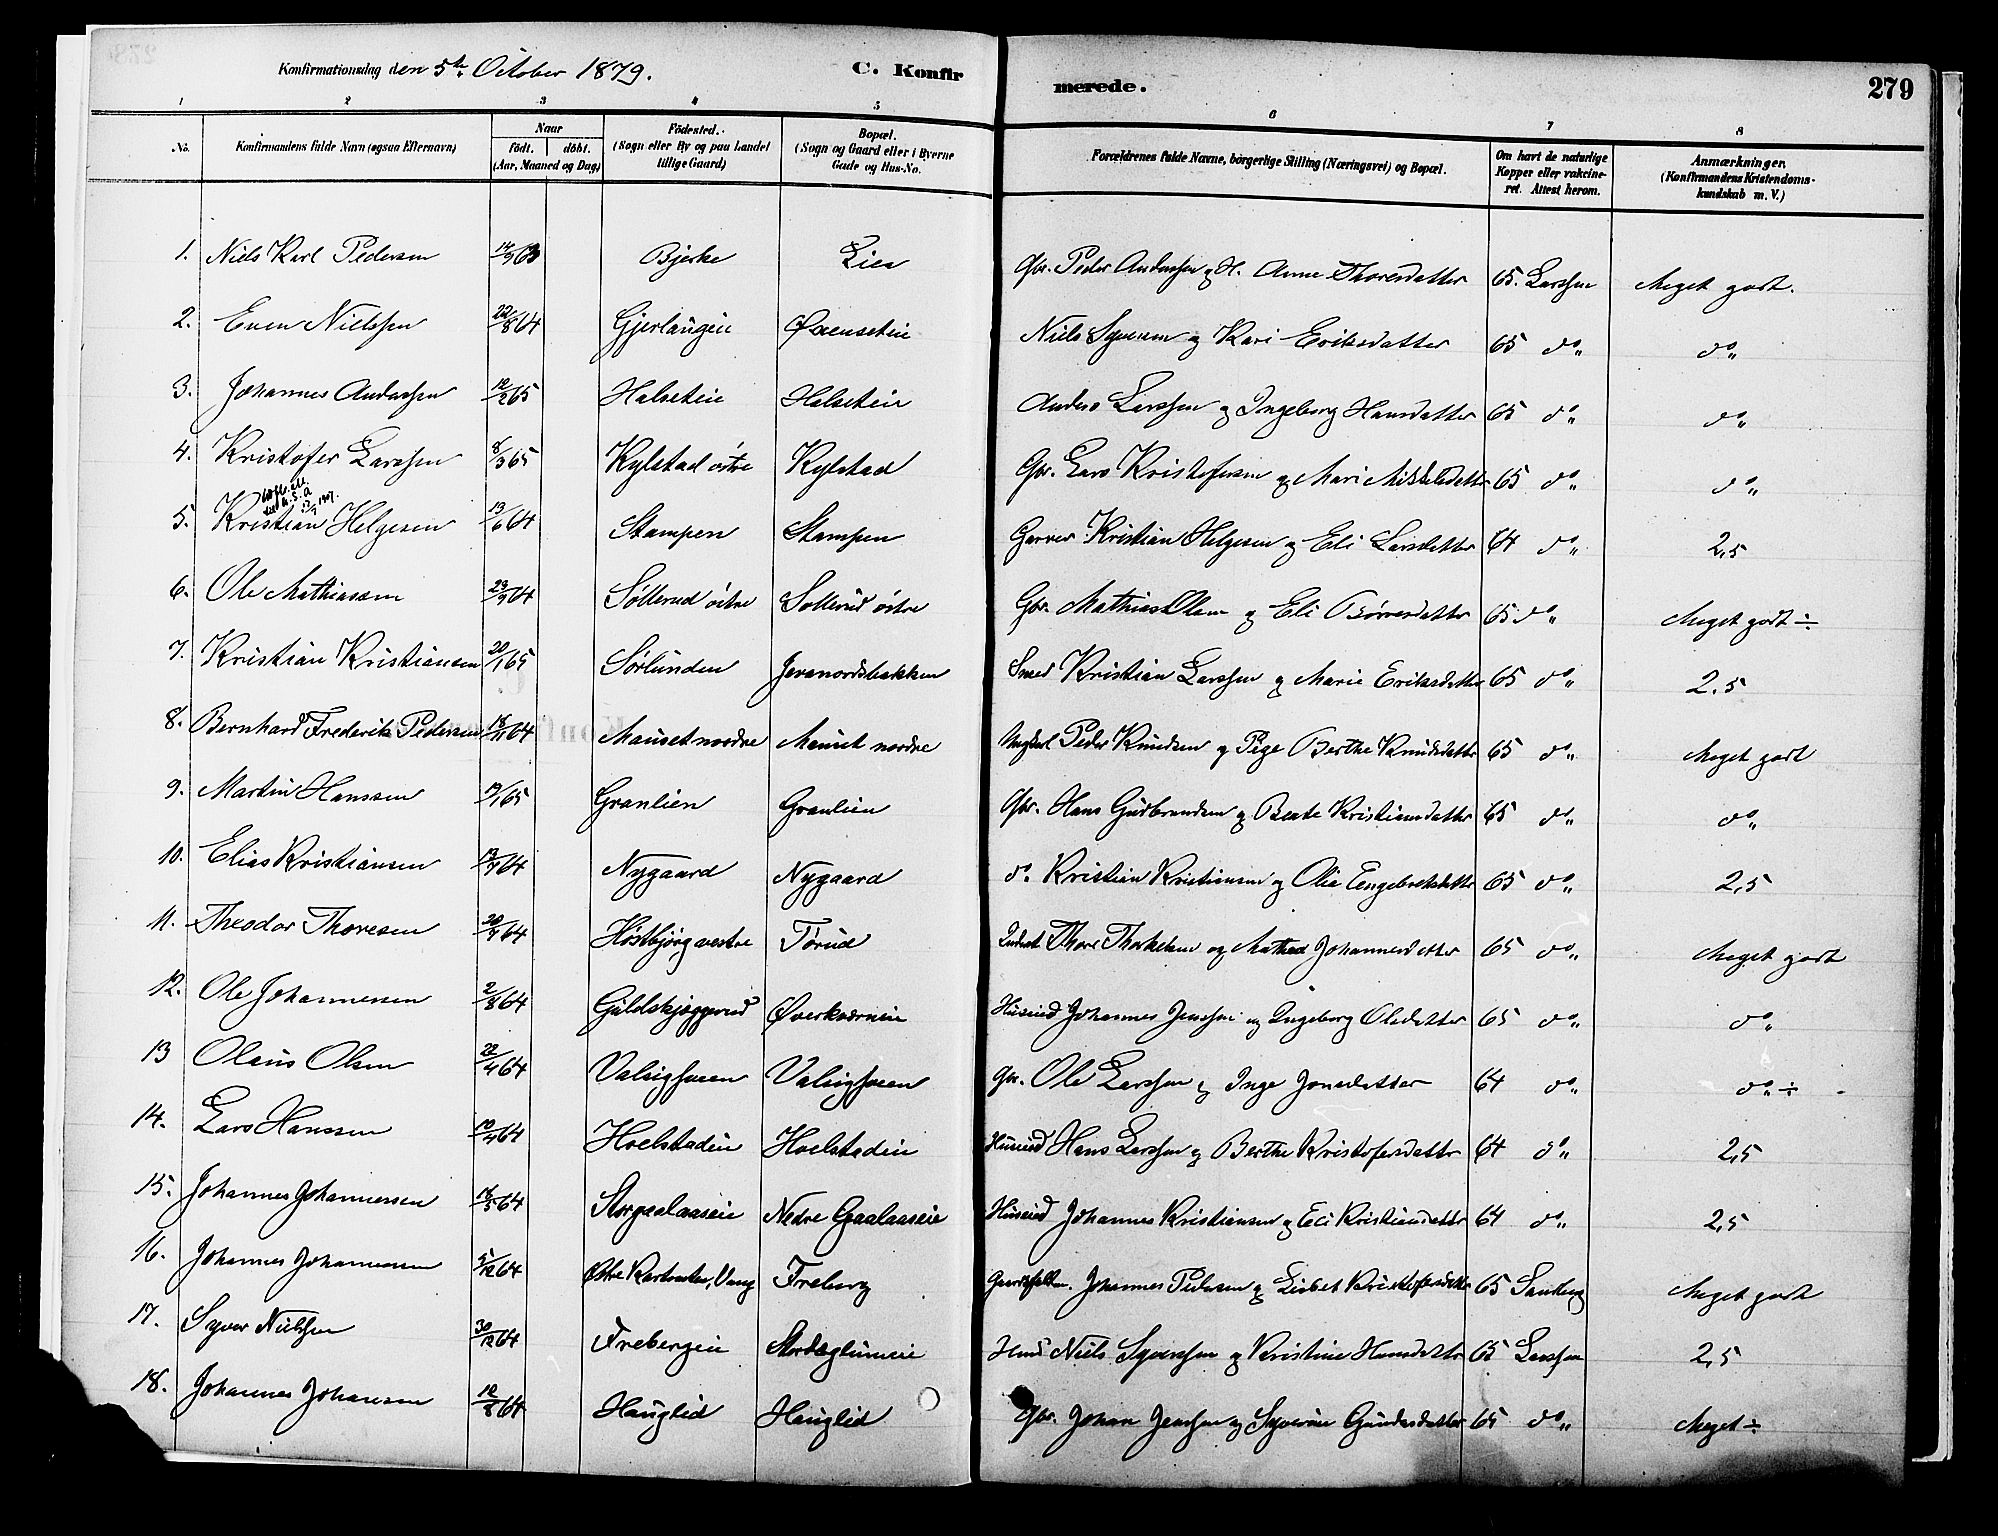 Konfirmationsdag den 5te October 1879.
C. Konfirmerede.
279
1 2 3 4 5 6 7 8
No. Konfirmandens fulde Navn (ogsaa Efternavn) Naar födt. döbt. (Aar, Maaned og Dag) Födested. (Sogn eller By og paa Landet tillige Gaard) Bopæl. (Sogn og Gaard eller i Byerne Gade og Hus-No. Forældrenes fulde Navne, börgerlige Stilling (Næringsvei) og Bopæl. Om havt de naturlige Kopper eller vakcineret. Attest herom. Anmærkninger. (Konfirmandens Kristendomskundskab m. V.)
1. Niels Karl Pedersen 14/9 63 Bjerke Lier Gbr. Peder Anderssen og H. Anne Thoresdatter 65. Larssen Meget godt.
2. Even Nielssen 22/8 64 Gjerlaugeie Niels Syversen og Kari Eriksdatter 65 do„ do„
3. Johannes Anderssen 12/2 65 Halseteie Halseteie Anders Larssen og Ingeborg Hansdatter 65 do„ do„
4. Kristofer Larssen 8/3 65 Kylstad östre Kylstad Gbr. Lars Kristofersen og Mari Mikkelsdatter 65 do„ do„
U.S.A 1907.
5. Kristian Helgesen 13/6 64 Stampen Stampen Garver Kristian Helgesen og Eli Larsdatter 64 do„ 2,5
6. Ole Mathiassen 23/9 64 Söllerud östre Sollerud östre Gbr. Mathias Olsen og Eli Börresdatter 65 do„ Meget godt ÷
7. Kristian Kristiansen 20/1 65 Sørlunden Jevanordsbakken Smed Kristian Larssen og Marie Eriksdatter 65 do„ 2.5
8. Bernhard Frederik Pedersen 18/11 64 Mauset nordre Mauset nordre Ungkarl Peder Knudsen og Pige Berthe Knudsdatter 65 do„ Meget godt
9. Martin Hanssen 65 Granlien Granlien Gbr. Hans Gudbrandsen og Beate Kristiansdatter 65 do„ do„
10. Elias Kristiansen 64 Nygaard Nygaard do. Kristian Kristiansen og Olie Engebretsdatter 65 do„ 2,5
11. Theodor Thoresen 64 Höstbjörg vestre Törud Thore Thorkelsen og Mathea Johannesdatter 65 do„ Meget godt
12. Ole Johannessen 2/8 64 Guldskjæggerud Øverkværneie Huseied Johannes Jenssen og Ingeborg Olsdatter 65 do„ do„
13 Olaus Olsen 22/4 64 Valsigsveen Valsigsveen Gbr. Ole Larssen og Inge Jonsdatter 64 do„ do„ ÷
14. Lars Hanssen 10/4 64 Hoelstadeie Hoelstadeie Huseied Hans Larssen og Berthe Kristofersdatter 64 do„ 2,5
15. Johannes Johannessen 18/5 64 Storgaalaaseie Nedre Gaalaaseie Huseied Johannes Kristiansen og Eli Kristiansdatter 64 do„ 2,5
16. Johannes Johannessen 5/12 64 Østre Vang Freberg Johannes Pedersen og Lisbet Kristofersdatter 65 Sandberg Meget godt
17. Syver Nielssen 30/12 64 Frebergeie Niels Syverssen og Kristine Hansdatter 65 Larssen 2,5
18. Johannes Johansen 12/8 64 Hauglid Hauglid Gbr. Johan Jenssen og Syverine Gundersdatter 65 do„ Meget ÷